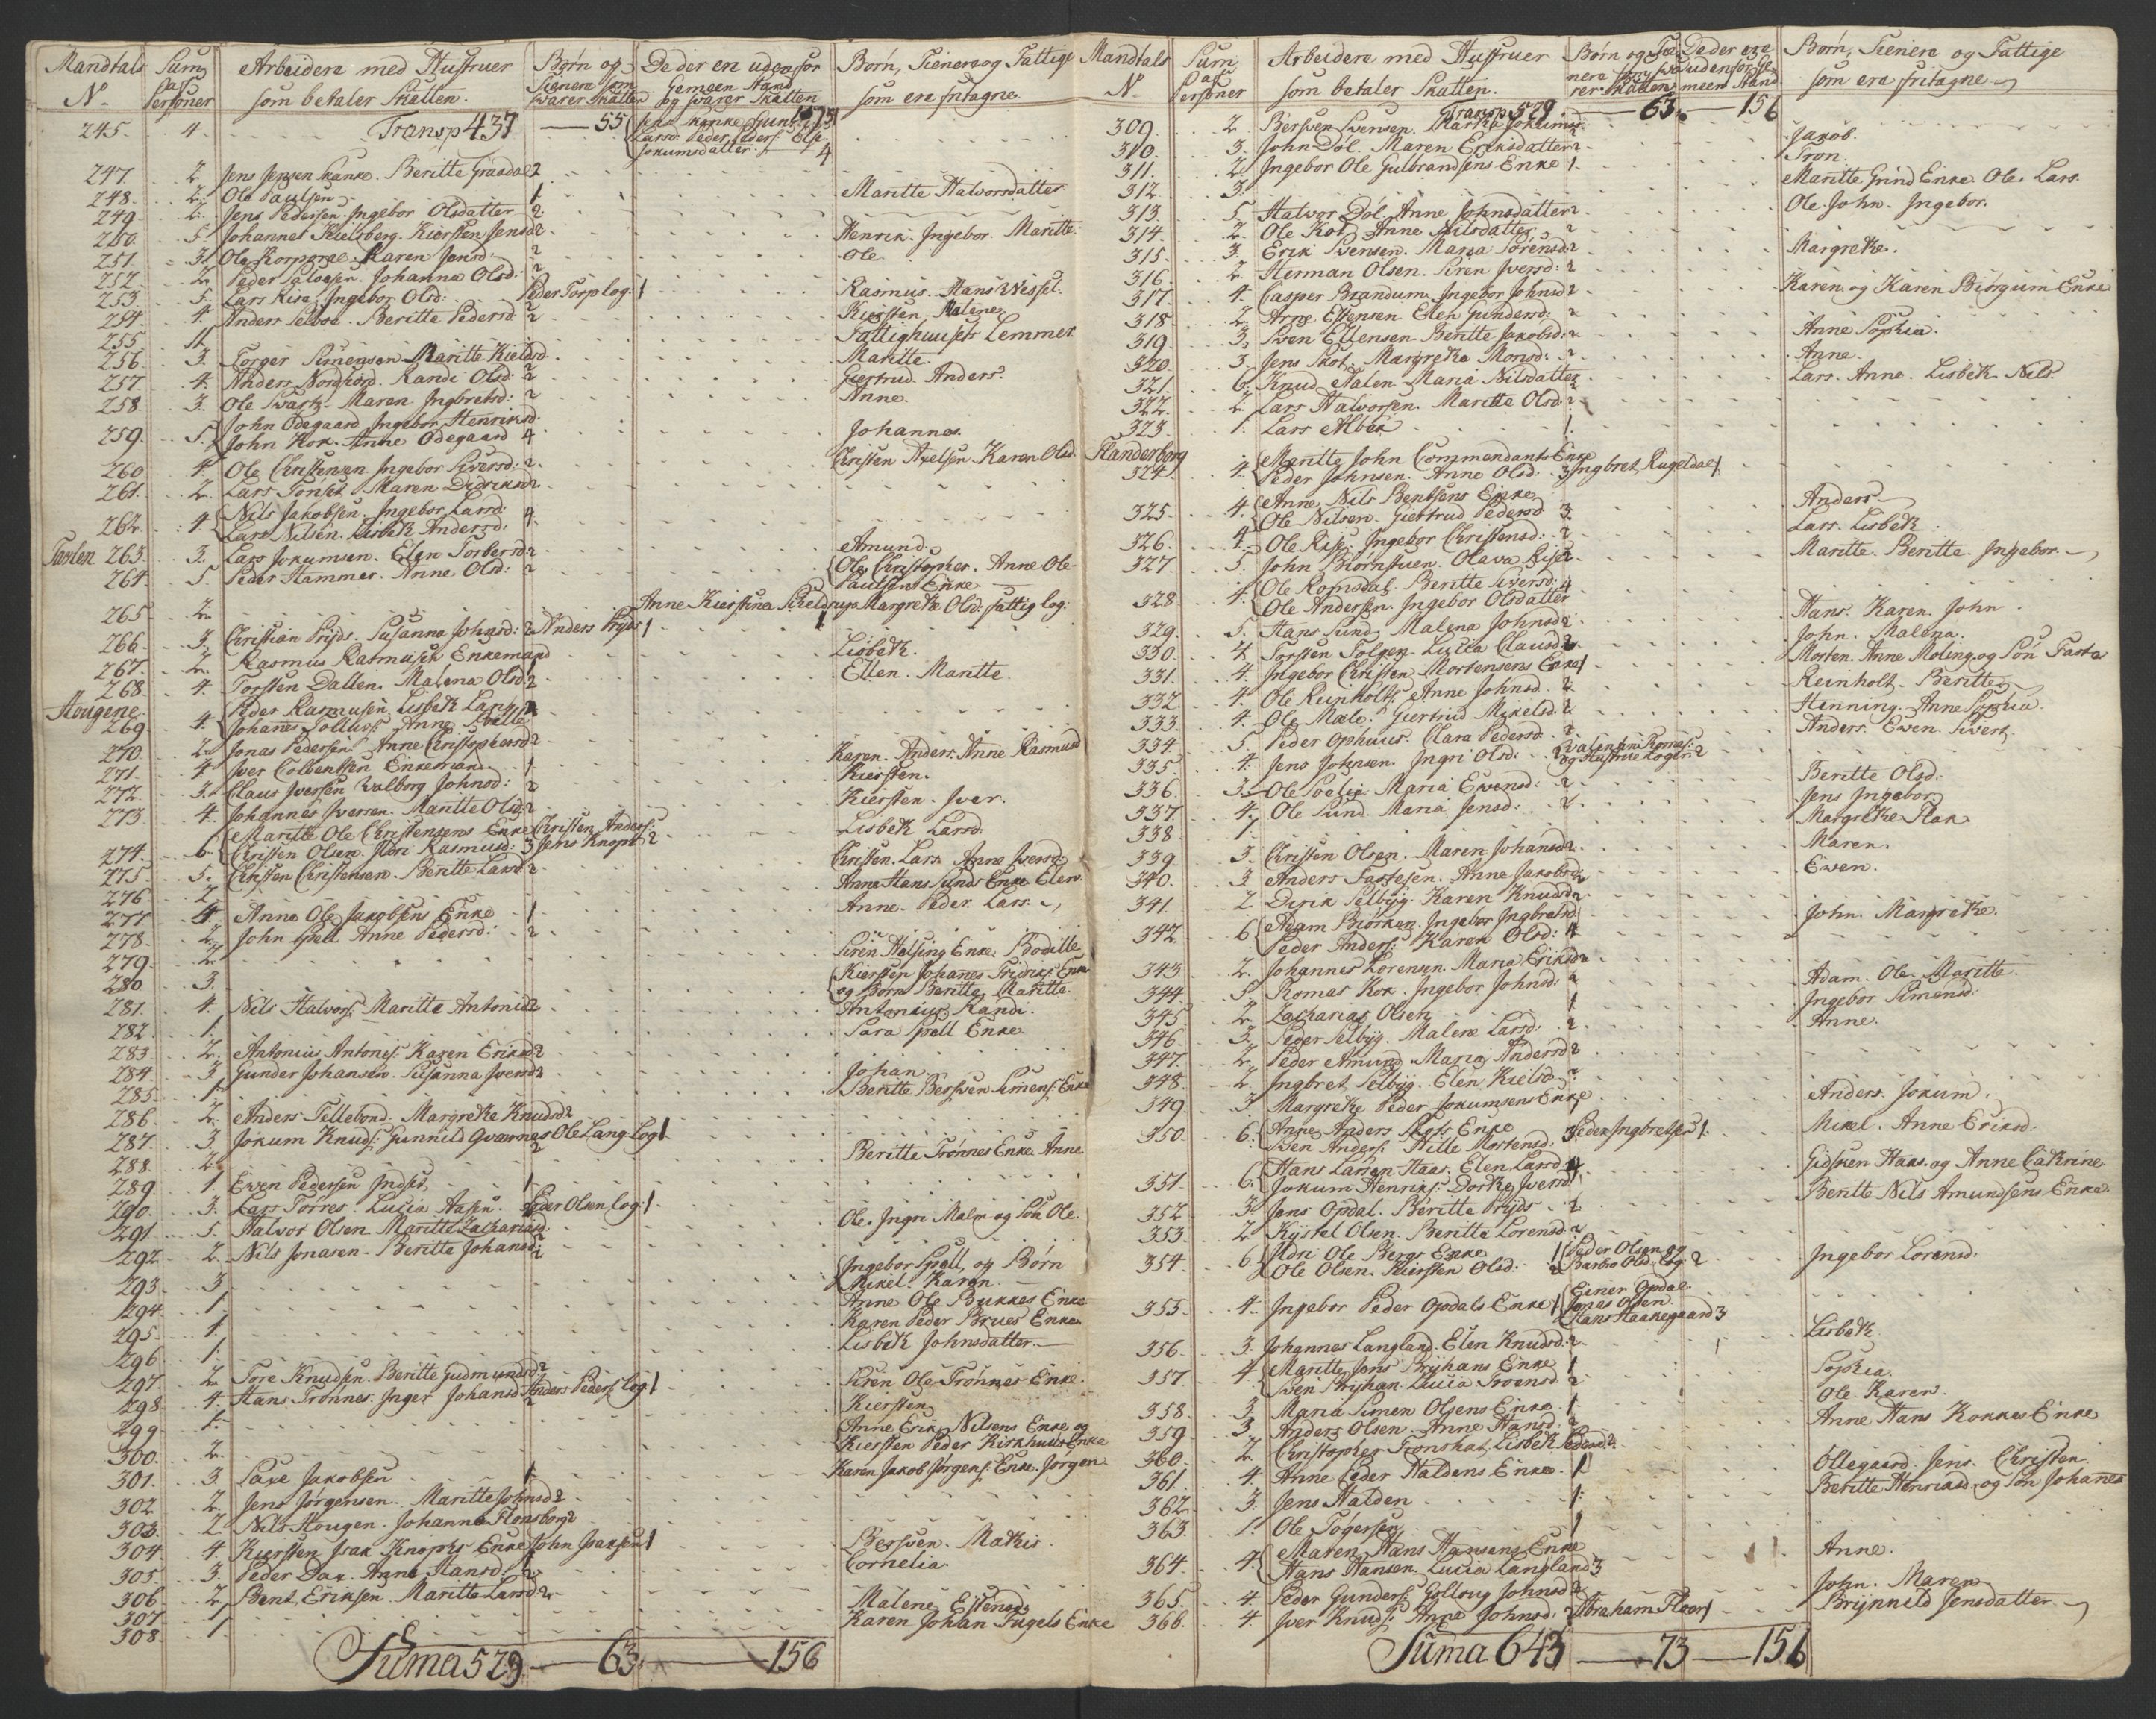 Mandtals Sum Arbeidere med Hustruer Børn og De der ere udenfor Børn, Tienere og Fattige
N. af Personer som betaler Skatten. Tienere som svarer Skatten Gemeen Stand og svarer Skatten som ere fritagne
245. 4. Transp 437 55
Jokumsdatter 4
247. 2. Jens Jensen Kanke. Beritte Graadal 2
248. 2. Ole Paulsen 1. Maritte Halvorsdatter
249. 2. Jens Pedersen. Ingebor Olsdatter 2.
250. 5. Johannes Kielsberg. Kiersten Jensd 2. Henrik. Ingebor. Maritte.
251. 3. Ole Korporal. Karen Jensd. 2 Ole.
252. 2. Peder Halvorsen. Johanna Olsd. 2
253. 5. Lars Rise. Ingebor Olsd: Peder Torp log: 1 Rasmus. Hans Wessel.
254. 4. Anders Selboe. Beritte Pedersd 2 Kiersten. Malene
255. 11. Fattighuusets Lemmer
256. 3. Torger Simensen Maritte Kieldsd. Maritte.
257. 4. Anders Nordfiord. Randi Olsd: 2 Giertrud. Anders.
258. 3. Ole Swartz. Maren Ingbretsd: 2 Anne.
259. 5. John Ødegaard Ingebor Henriksd.
John Kok. Anne Ødegaard 4 Johannes.
260 4 Ole Christensen. Ingebor Siversd: 2. Christen Axelsen. Karen Olsd.
261. 2. Lars Tønset Maren Didriksd 2
262. 4. Nils Jakobsen. Ingebor Larsd:
Lars Nilsen. Lisbeth Andersd: 4.
Taslen 263. 3. Lars Jokumsen. Elen Torbersd: 2 Amund.
264. 5. Peder Hammer. Anne Olsd: 2 Ole Christopher. Anne Ole
Paulsens Enke
265. 2. Anne Kierstina Skieldrup Margrethe Olsd: fattig log:
266. 3. Christian Prijds. Susanna Johnsd: 2 Anders Prijds 1 Lisbeth.
267. 2. Rasmus Rasmusen Enkemand 1
268. 4. Torsten Dallen. Malena Olsd 2 Ellen. Maritte.
Hougene. Peder Rasmusen Lisbeth Lang
269 4. Johanes Tollufs. Anne 4
270. 2. Jonas Pedersen. Anne Christophersd 2
271. 4 Iver Colbentsen Enkemand 1 Karen. Anders. Anne Rasmusd
272. 3. Claus Iversen Walborg Johnsd: 2 Kiersten.
273. 4. Johannes Iversen. Maritte Olsd: 2 Kiersten. Iver.
274. 6. Maritte Ole Christensens Enke Christen Anders. Lisbeth Larsd.
Christen Olsen. Rasmusd: 3 Jens Knoph 2
275 5. Christen Christensen. Beritte Larsd 2 Christen. Lars. Anne Iversd.
276. 2 Anne Hans Lunds Enke Elen.
277 4. Anne Ole Jakobsens Enke 1 Anne. Peder. Lars.
278. 2. John Spell Anne Pedersd: 2
279. 2. Siren Helsing Enke. Bodille
280 3. Kiersten Johanes Fridriks Enke
og Børn Beritte, Maritte.
281. 4. Nils Halvors: Maritte Antonisd 2 Antonius Randi.
282. 1. Sara Spell Enke
283. 2. Antonius Antonis: Karen Eriksd 2
284. 3 Gunder Johansen. Susanna Iversd 2 Johan.
285. 1 Beritte Berswen Simens: Enke
286. 2. Anders Tellebond. Margrethe Knudsd 2
287. 3 Jokum Knuds: Gunnild Qværnes Ole Lang log 1
288. 2 Beritte Trønnes Enke. Anne
289. 1. Ewen Pedersen Indset. 1
290. 3. Lars Torres. Lucia Aasen. Peder Olsen log: 1
291. 5. Halvor Olsen Maritte Zachariasd. Ole. Ingri Malm og Søn Ole.
292. 2. Nils Jonasen. Beritte Johansd: 2
293. 3 Ingebor Spell, og Børn
Mikel. Karen.
294. 1 Anne Ole Bukkes Enke
295. 1. Karen Peder Brues Enke.
296. 1. Lisbeth Johnsdatter
297. 2. Tore Knudsen. Beritte Gudmundsd 2
298. 4. Hans Trønnes. Inger Johansd Anders Peders: log: 1 Siren Ole Trønnes Enke.
299 1. Kiersten
300. 2. Anne Erik Nilsens Enke og
Kiersten Peder Kirkhuus Enke
301. 3 Saxe Jakobsen 1 Karen Jakob Jørgens: Enke. Jørgen
302 2. Jens Jørgensen. Maritte Johnsd 2
303. 2. Nils Hougen. Johanne Flensborg 2
304. 4. Kiersten Isak Knophs Enke John Isaksen 1 Berswen. Mathis.
305. 3. Peder Dax. Anne Hansd: 2 Cornelia.
306 2. Bent Eriksen. Maritte Larsd 2
307. 1 Malene Estensd
308. 1 Karen Johan Engels Enke
Suma 529. 63. 156
Mandtals Sum Arbeidere med Hustruer Børn og De der ere Børn, Tienere og Fattige
N. af Personer som betaler Skatten. som ere fritagne
Transp 529 63. 156
309. 2. Berswen Swensen. Martha Jokumsd
310. 3. John Døl. Maren Eriksdatter 2 Jakob.
311. 2 Ingebor Ole Gulbrandsens Enke 1. Tron.
312. 3. Maritte Grind Enke Ole. Lars.
313. 5. Halvor Døl. Anne Johnsdatter 2. Ole. John. Ingebor.
314. 2. Ole Kok Anne Nilsdatter 2
315. 3. Erik Swensen. Maria Sørensd 2 Margrethe.
316. 2. Herman Olsen. Siren Iversd: 2
317. 4. Casper Brandum. Ingebor Johnsd 2 Karen og Karen Biørgum Enke
318. 2. Arne Estensen Elen Gundersd: 2
319. 3. Swen Ellensen. Beritte Jakobsd: 2 Anne Sophia.
320. 3. Jens Skot. Margrethe Monsd: 2 Anne.
321. 6. Knud Aalen. Maria Nilsdatter Lars. Anne. Lisbeth. Nils.
322. 2. Lars Halvorsen. Maritte Olsd: 2.
323. 1. Lars Albek 1.
Flanderborg Maritte John Commendants Enke
324. 4. Peder Johnsen. Anne Olsd. 3 Ingbret Rugeldal 1.
325. 4. Anne Nils Bentsens Enke
Ole Nilsen. Giertrud Pedersd 3. Anders
326. 4. Ole Rise. Ingebor Christensd: 2 Lars. Lisbeth.
327. 5. John Biørnstuen. Olava Rise 2. Maritte. Beritte. Ingebor.
328. 4. Ole Romsdal. Beritte Siversd: 4
Ole Andersen. Ingebor Olsdatter
329. 5. Hans Lund Malena Johnsd 2 Hans. Karen. John.
330. 4. Torsten Tolgen. Lucia Clausd 2 John. Malena.
331. 4. Ingebor Christen Mortensens Enke 1 Morten. Anne Moling og Søn Faste
332. 4. Ole Reinholts: Anne Johnsd. 2. Reinholt. Beritte
333. 4. Ole Mæle. Giertrud Mikelsd. 2. Henning. Anne Sophia.
334. 5. Peder Ophuus. Clara Pedersd. 2 Anders. Ewen. Sivert.
335. 4. Jens Johnsen. Ingri Olsd: 2
og Hustrue Loger: 2
336. 3. Ole Maria Ewensd: 2 Beritte Olsd:
337. 4. Ole Lund. Maria Jensd: 2 Jens Ingebor
338. 1 Margrethe Flak
339. 3. Christen Olsen. Maren Johansd 2. Maren.
340. 3 Anders Fastesen. Anne Jakobsd 2 Ewen.
341. 2 Dirik Selbyg. Karen Knudsd 2
342 6 Adam Biørken. Ingebor Ingbretsd
Peder Anders: Karen Olsd: 4 John. Margrethe.
343. 2. Johannes Lorensen. Maria Eriksd 2
344. 5. Thomas Kok. Ingebor Johnsd: 2 Adam. Ole. Maritte.
345 2. Zacharias Olsen 1 Ingebor Simensd:
346. 3. Peder Selbyg. Malene Larsd: 2 Anne.
347. 2. Peder Amund Maria Andersd 2
348. 2. Ingbret Selbyg. Elen Kielsd. 2
349. 3. Margrethe Peder Jokumsens Enke Anders. Jokum.
350. 6. Anne Anders Enke Peder Ingbretsen 1. Mikel. Anne Eriksd.
Swen Anders: Hille Mortensd: 3
351. 6. Hans Larsen Haas. Elen Larsd 4 Gidsken Haas og Anne Cathrine
Jokum Henriks: Dorthe Iversd
352 3. Jens Opdal. Beritte Prijds. 2 Beritte Nils Amundsens Enke.
353. 2. Kystel Olsen. Beritte Lorensd: 2
354. 6. Ole Bergs Enke 1 Peder Olsen og Ingebor Lorensd:
Ole Olsen. Kiersten Olsd: 2 Barbro Olsd: log: 2
355. 4. Ingebor Peder Opdals Enke 1 Einer Opdal.
Jonas Olsen.
Hans Haakegaard 3
356. 3. Johannes Langland. Elen Knudsd: 2 Lisbeth
357. 4. Maritte Jens Brijhans Enke 1 Sophia.
Swen Brijhan. Lucia Troensd 2
358. 3. Maria Simen Olsens Enke. 1 Ole. Karen.
359. 3. Anders Olsen. Anne Hansd: 2 Anne Hans Kokkes Enke
360. 2. Christopher Trønshat, Lisbeth Pedersd 2.
361. 4. Anne Peder Haldens Enke. 1 Øllegaard. Jens. Christen.
362. 3. Jens Halden 1. Beritte Henriksd. og Søn Johanes
363. 1. Ole Togersen 1
364. 4. Maren Hans Hansens Enke
Hans Hansen. Lucia Langland 3 Anne.
365. 4. Peder Gunders: Gollaug Johnsd 2 John. Maren
366. 4. Iver Knuds: Anne Johnsd: 2 Abraham Floer 1 Brynnild Jensdatter
Suma 643 73 156